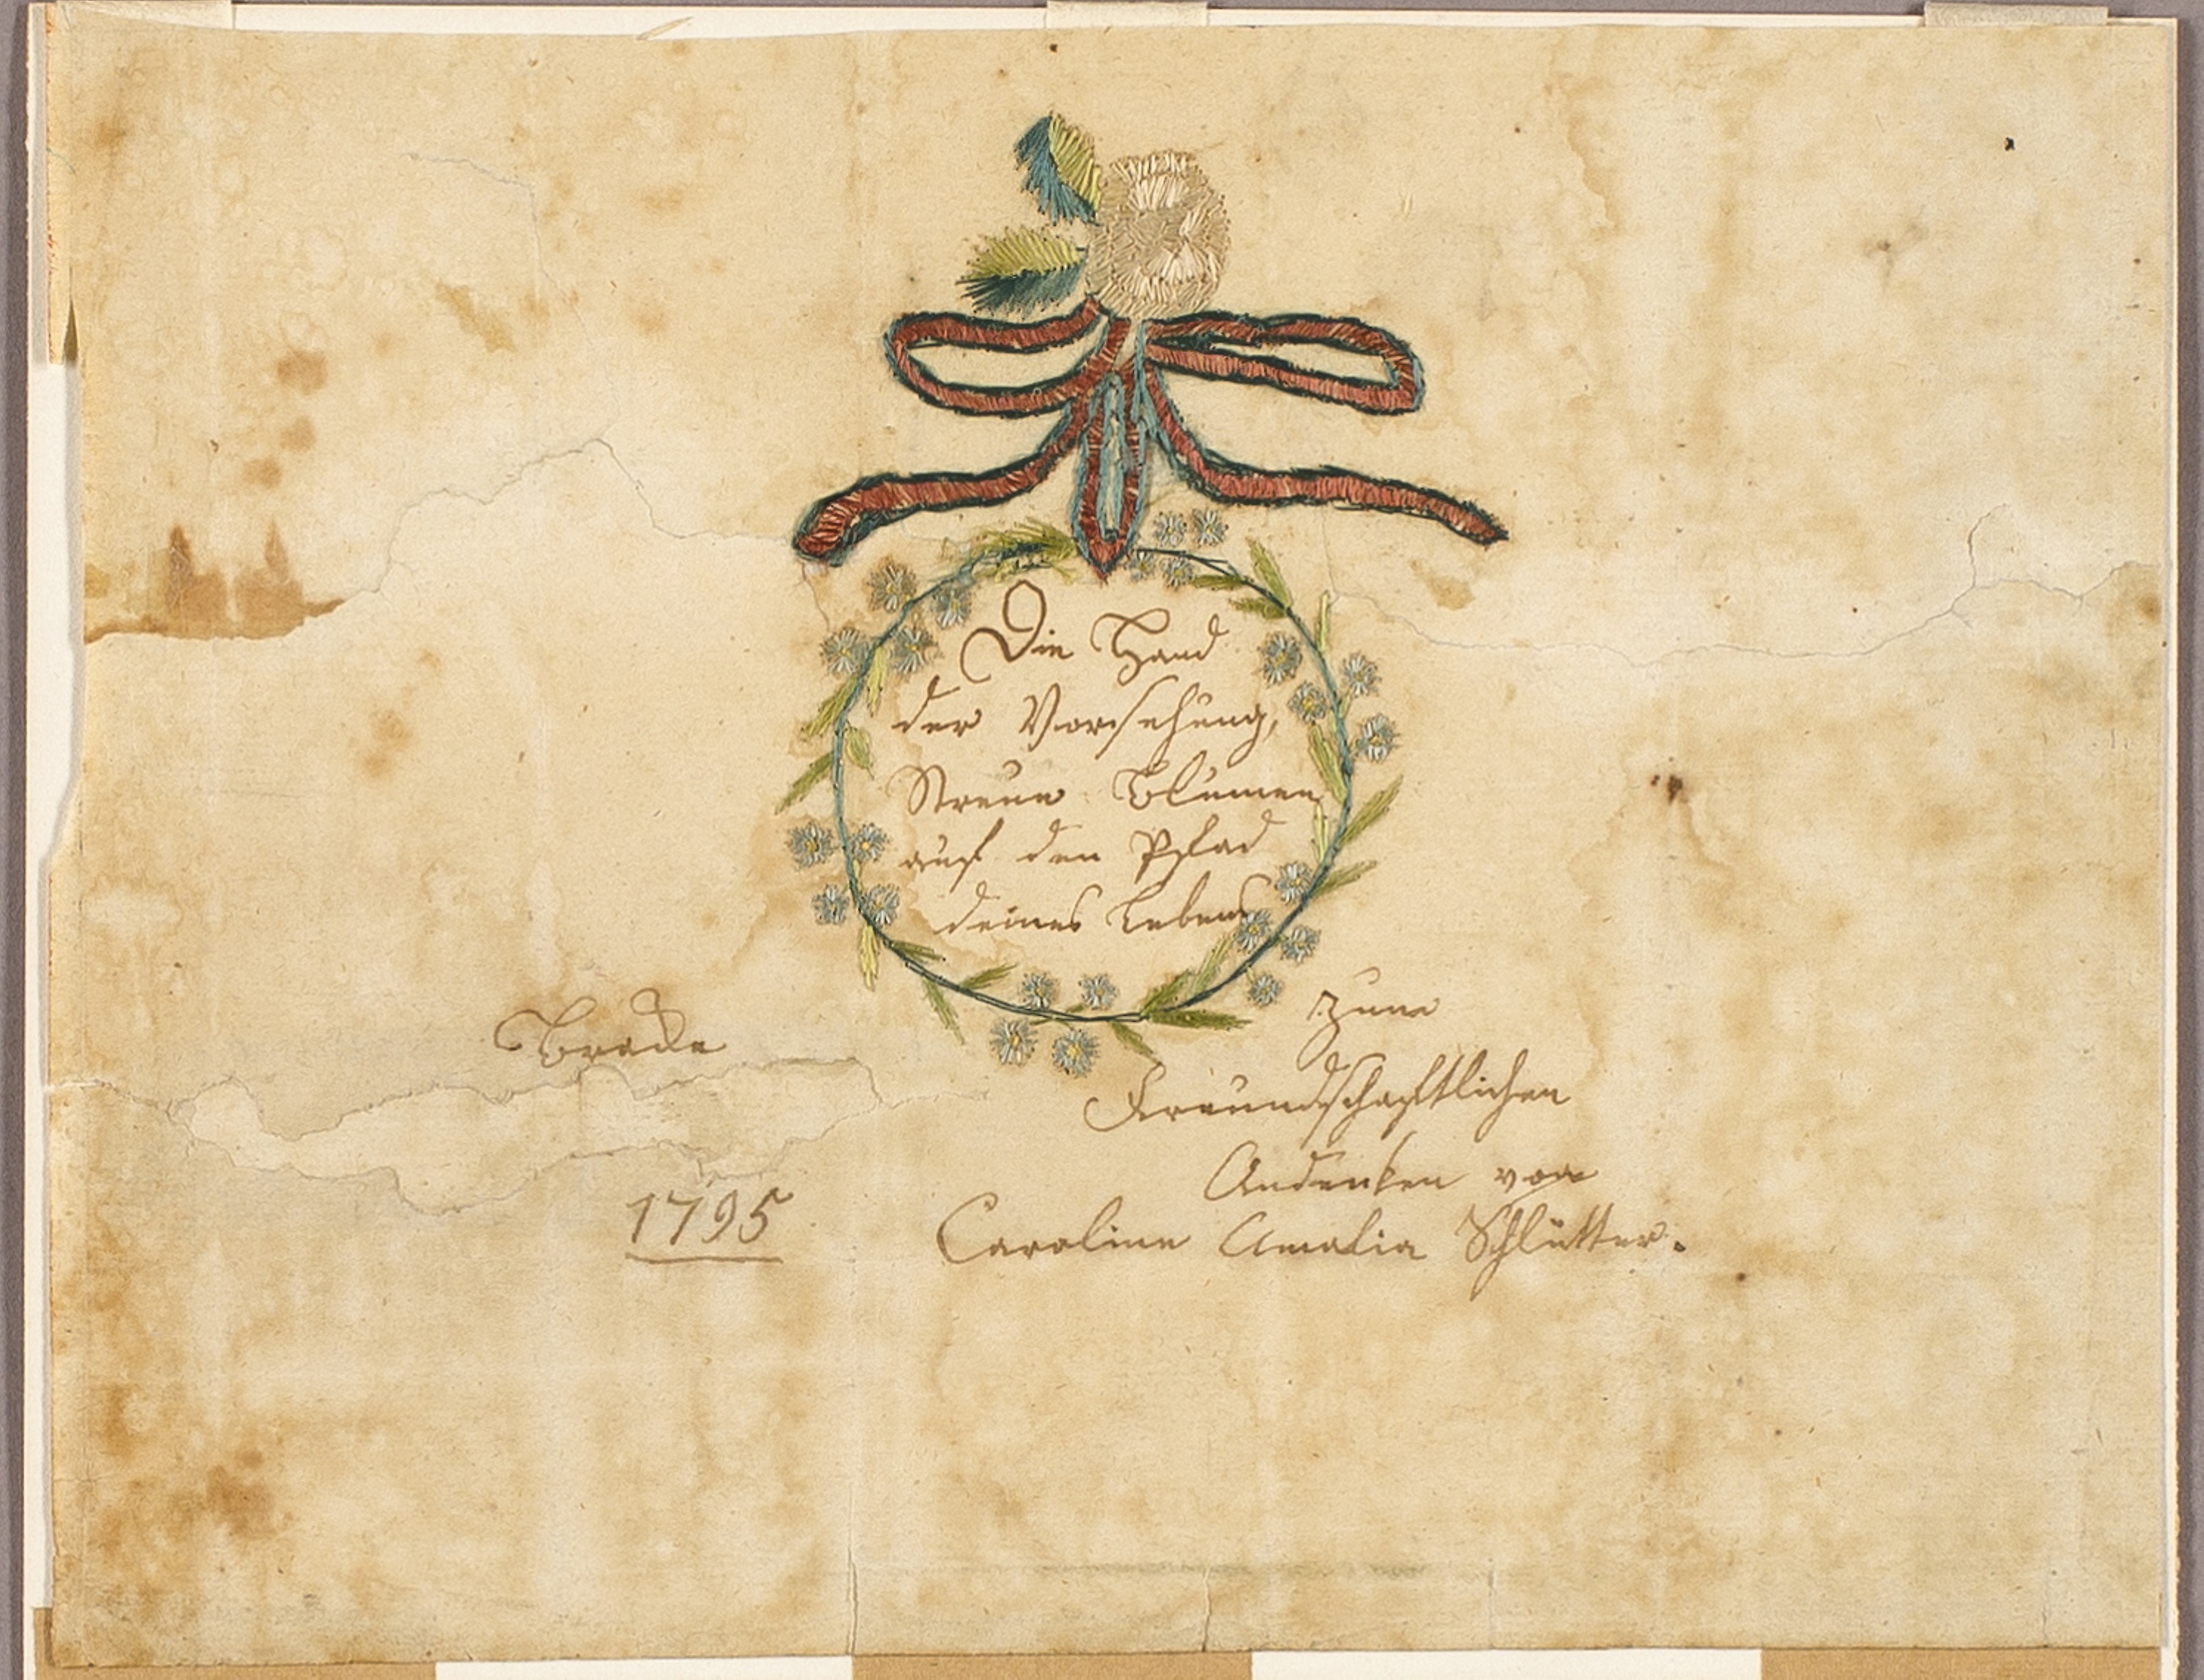 Die Hand
der Vorsehung,
Streue Blumen
auf den Pfad
deines Lebens
Brake
zum
Freundschaftlichen
Andenken von
1795
Caroline Amalia Schlütter.